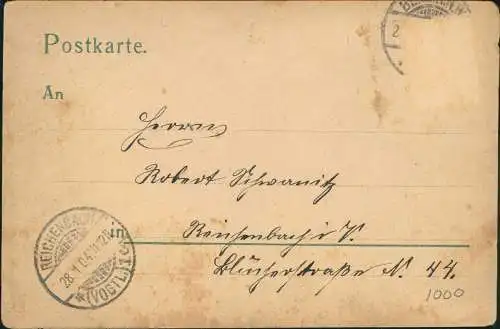 Postkarte.
An
Herrn
Robert Schwanitz
in
Reichenbach i V.
Blücherstraße N. 44.
REICHENBACH
28.1.04.11-12V.
*(VOGTL.)
1000